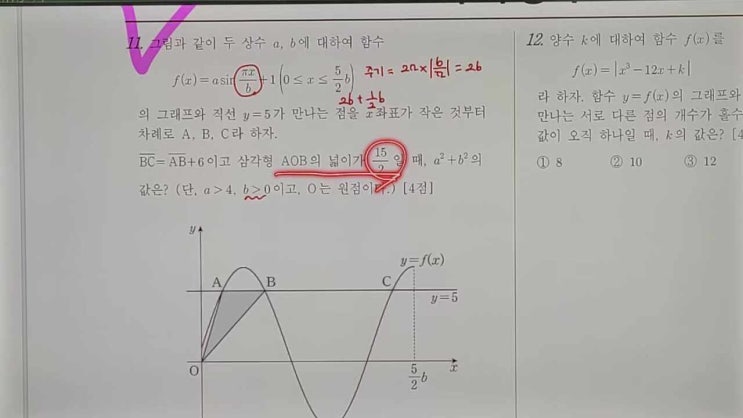 11. 그림과 같이 두 상수 a, b에 대하여 함수
f(x)=a sin πx/b +1 (0≤x≤5/2 b) 주기 = 2π×|b/π| = 2b
2b+1/2b
의 그래프와 직선 y=5가 만나는 점을 x좌표가 작은 것부터
차례로 A, B, C라 하자.
BC=AB+6이고 삼각형 AOB의 넓이가 15/2일 때, a²+b²의
값은? (단, a>4, b>0이고, O는 원점이다.) [4점]
y
y=f(x)
A B C
y=5
O 5/2 b x
12. 양수 k에 대하여 함수 f(x)를
f(x)=|x³-12x+k|
라 하자. 함수 y=f(x)의 그래프와
만나는 서로 다른 점의 개수가 홀수
값이 오직 하나일 때, k의 값은? [4
① 8 ② 10 ③ 12